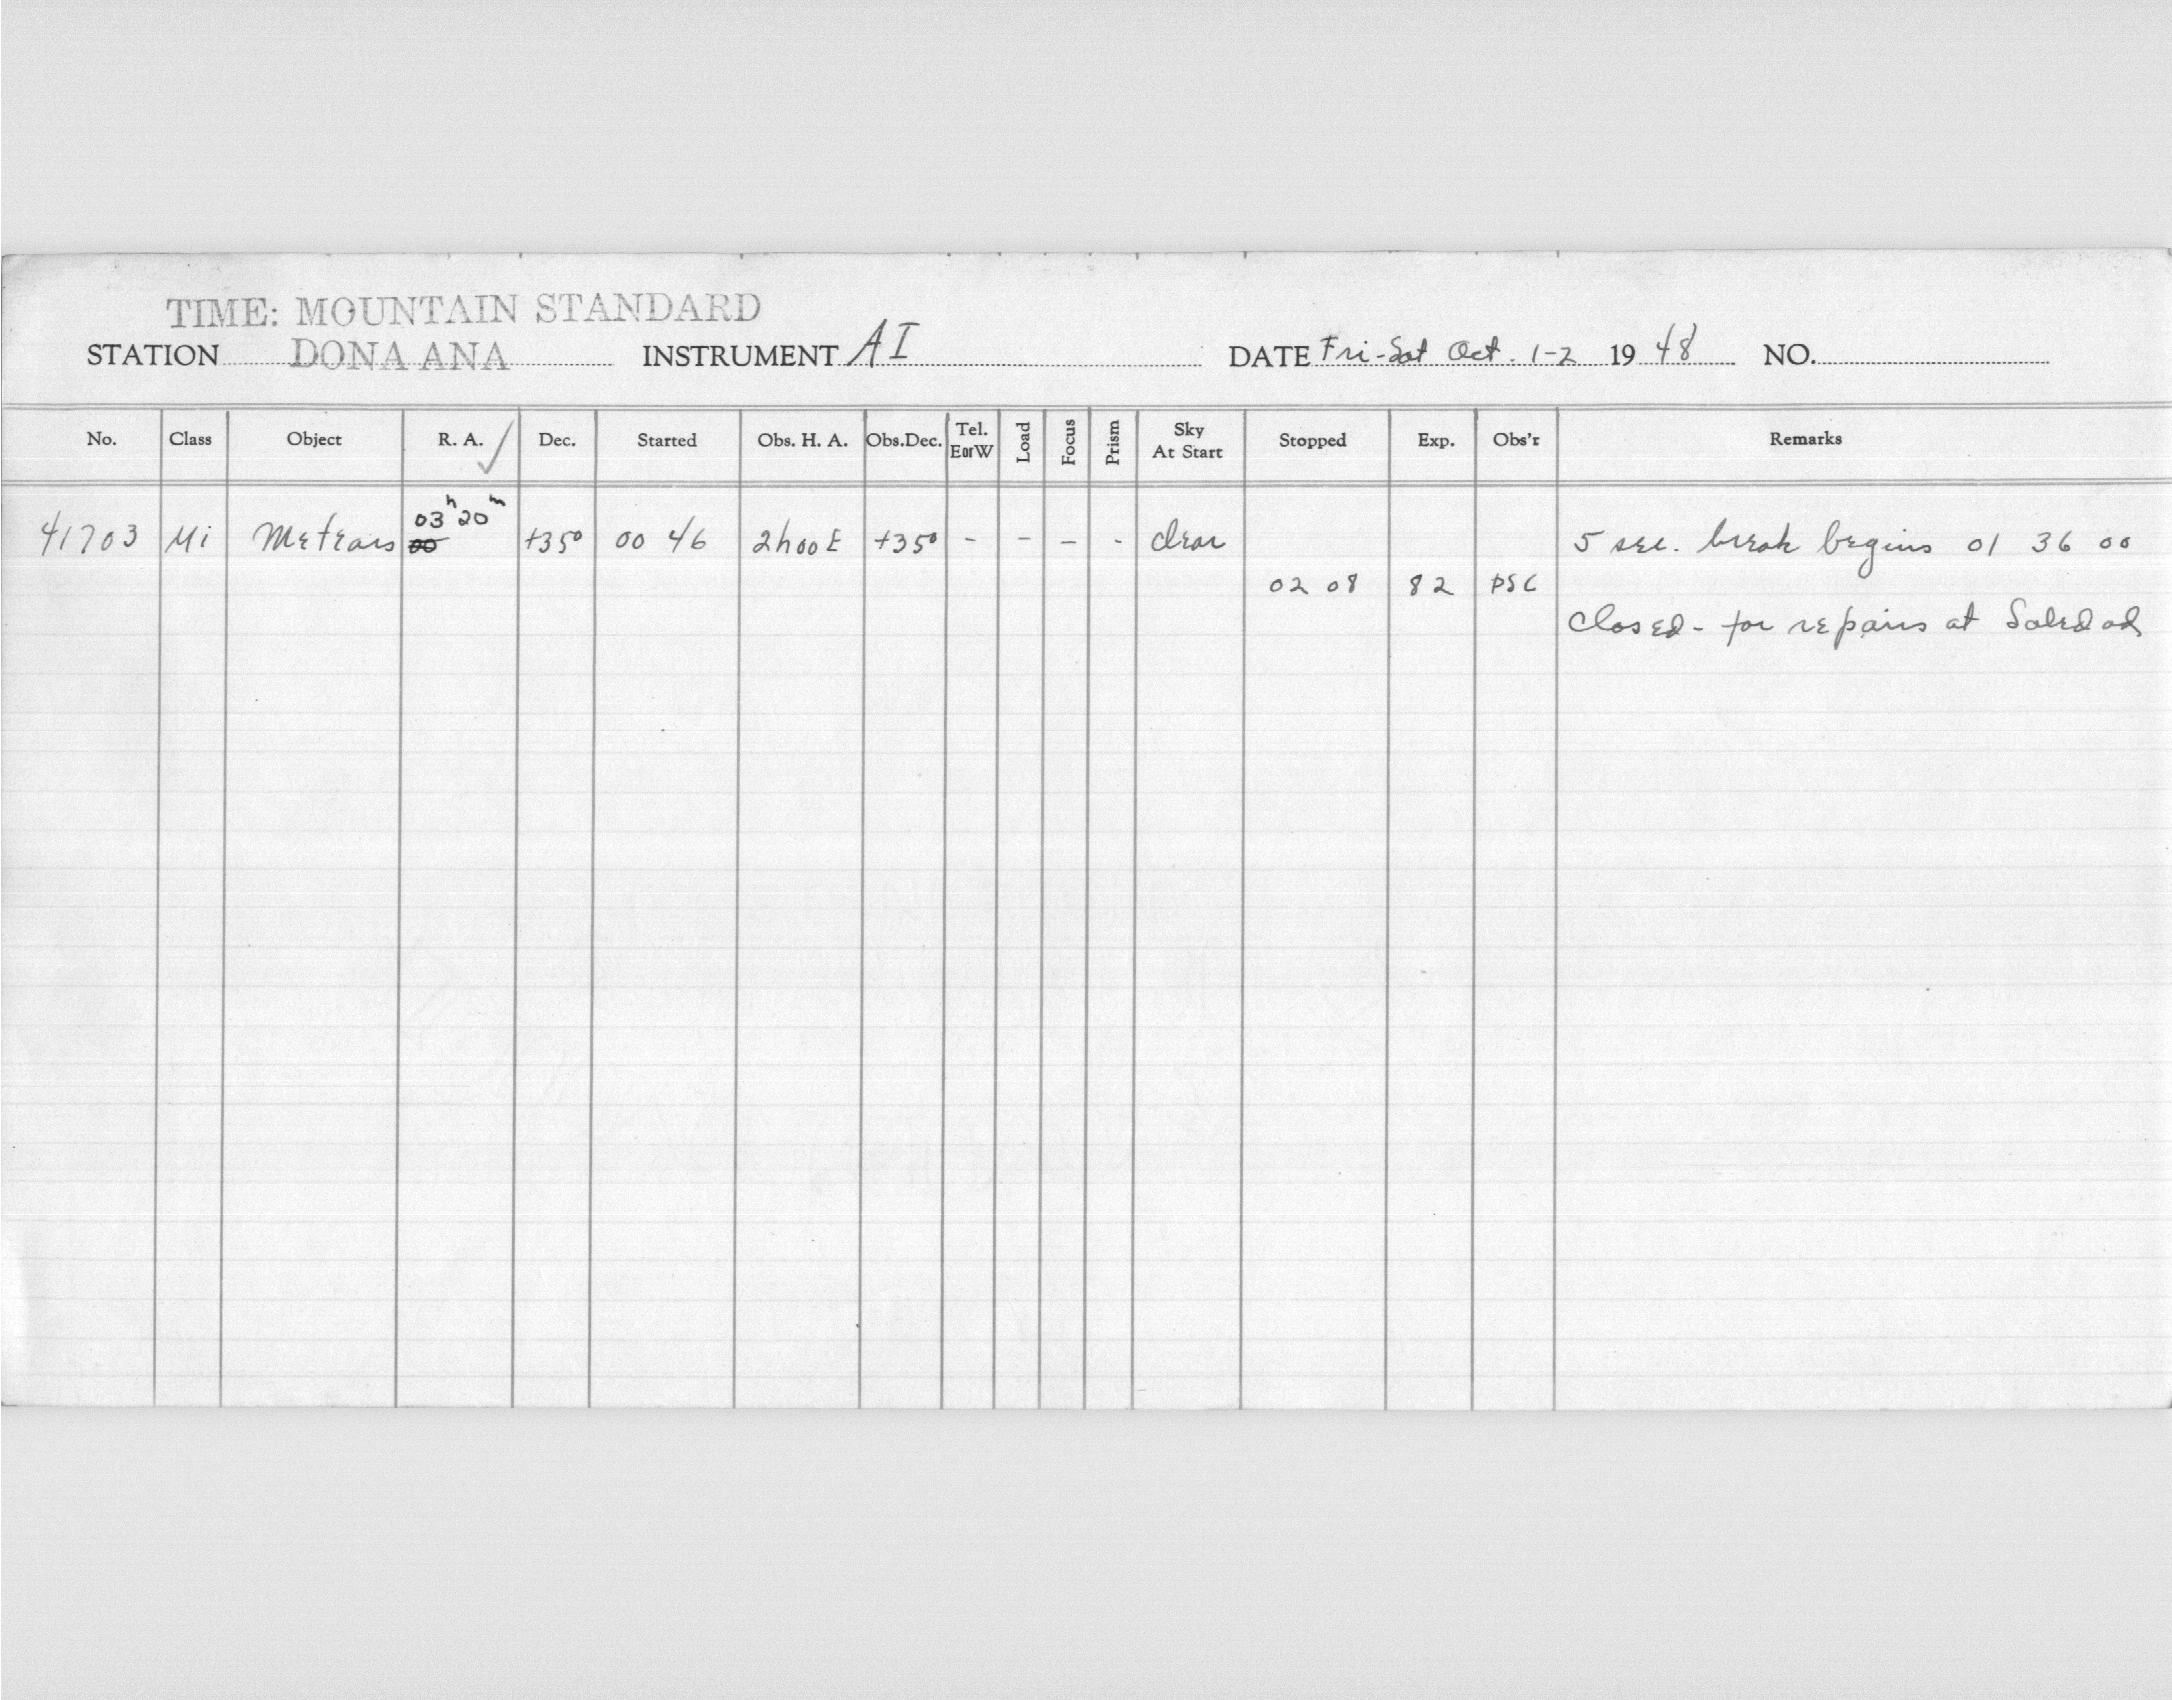 TIME: MOUNTAIN STANDARD
STATION DONA ANA INSTRUMENT AI DATE Fri-Sat Oct. 1-2 1948 NO.
No. Class Object R. A. ✓ Dec. Started Obs. H. A. Obs.Dec. Tel. EorW Load Focus Prism Sky At Start Stopped Exp. Obs'r Remarks
03h 20m
41703 Mi Meteors 00 +35° 00 46 2h00E +35° - - - - clear 5 sec. break begins 01 36 00
02 08 82 PSC
Closed - for repairs at Soledad